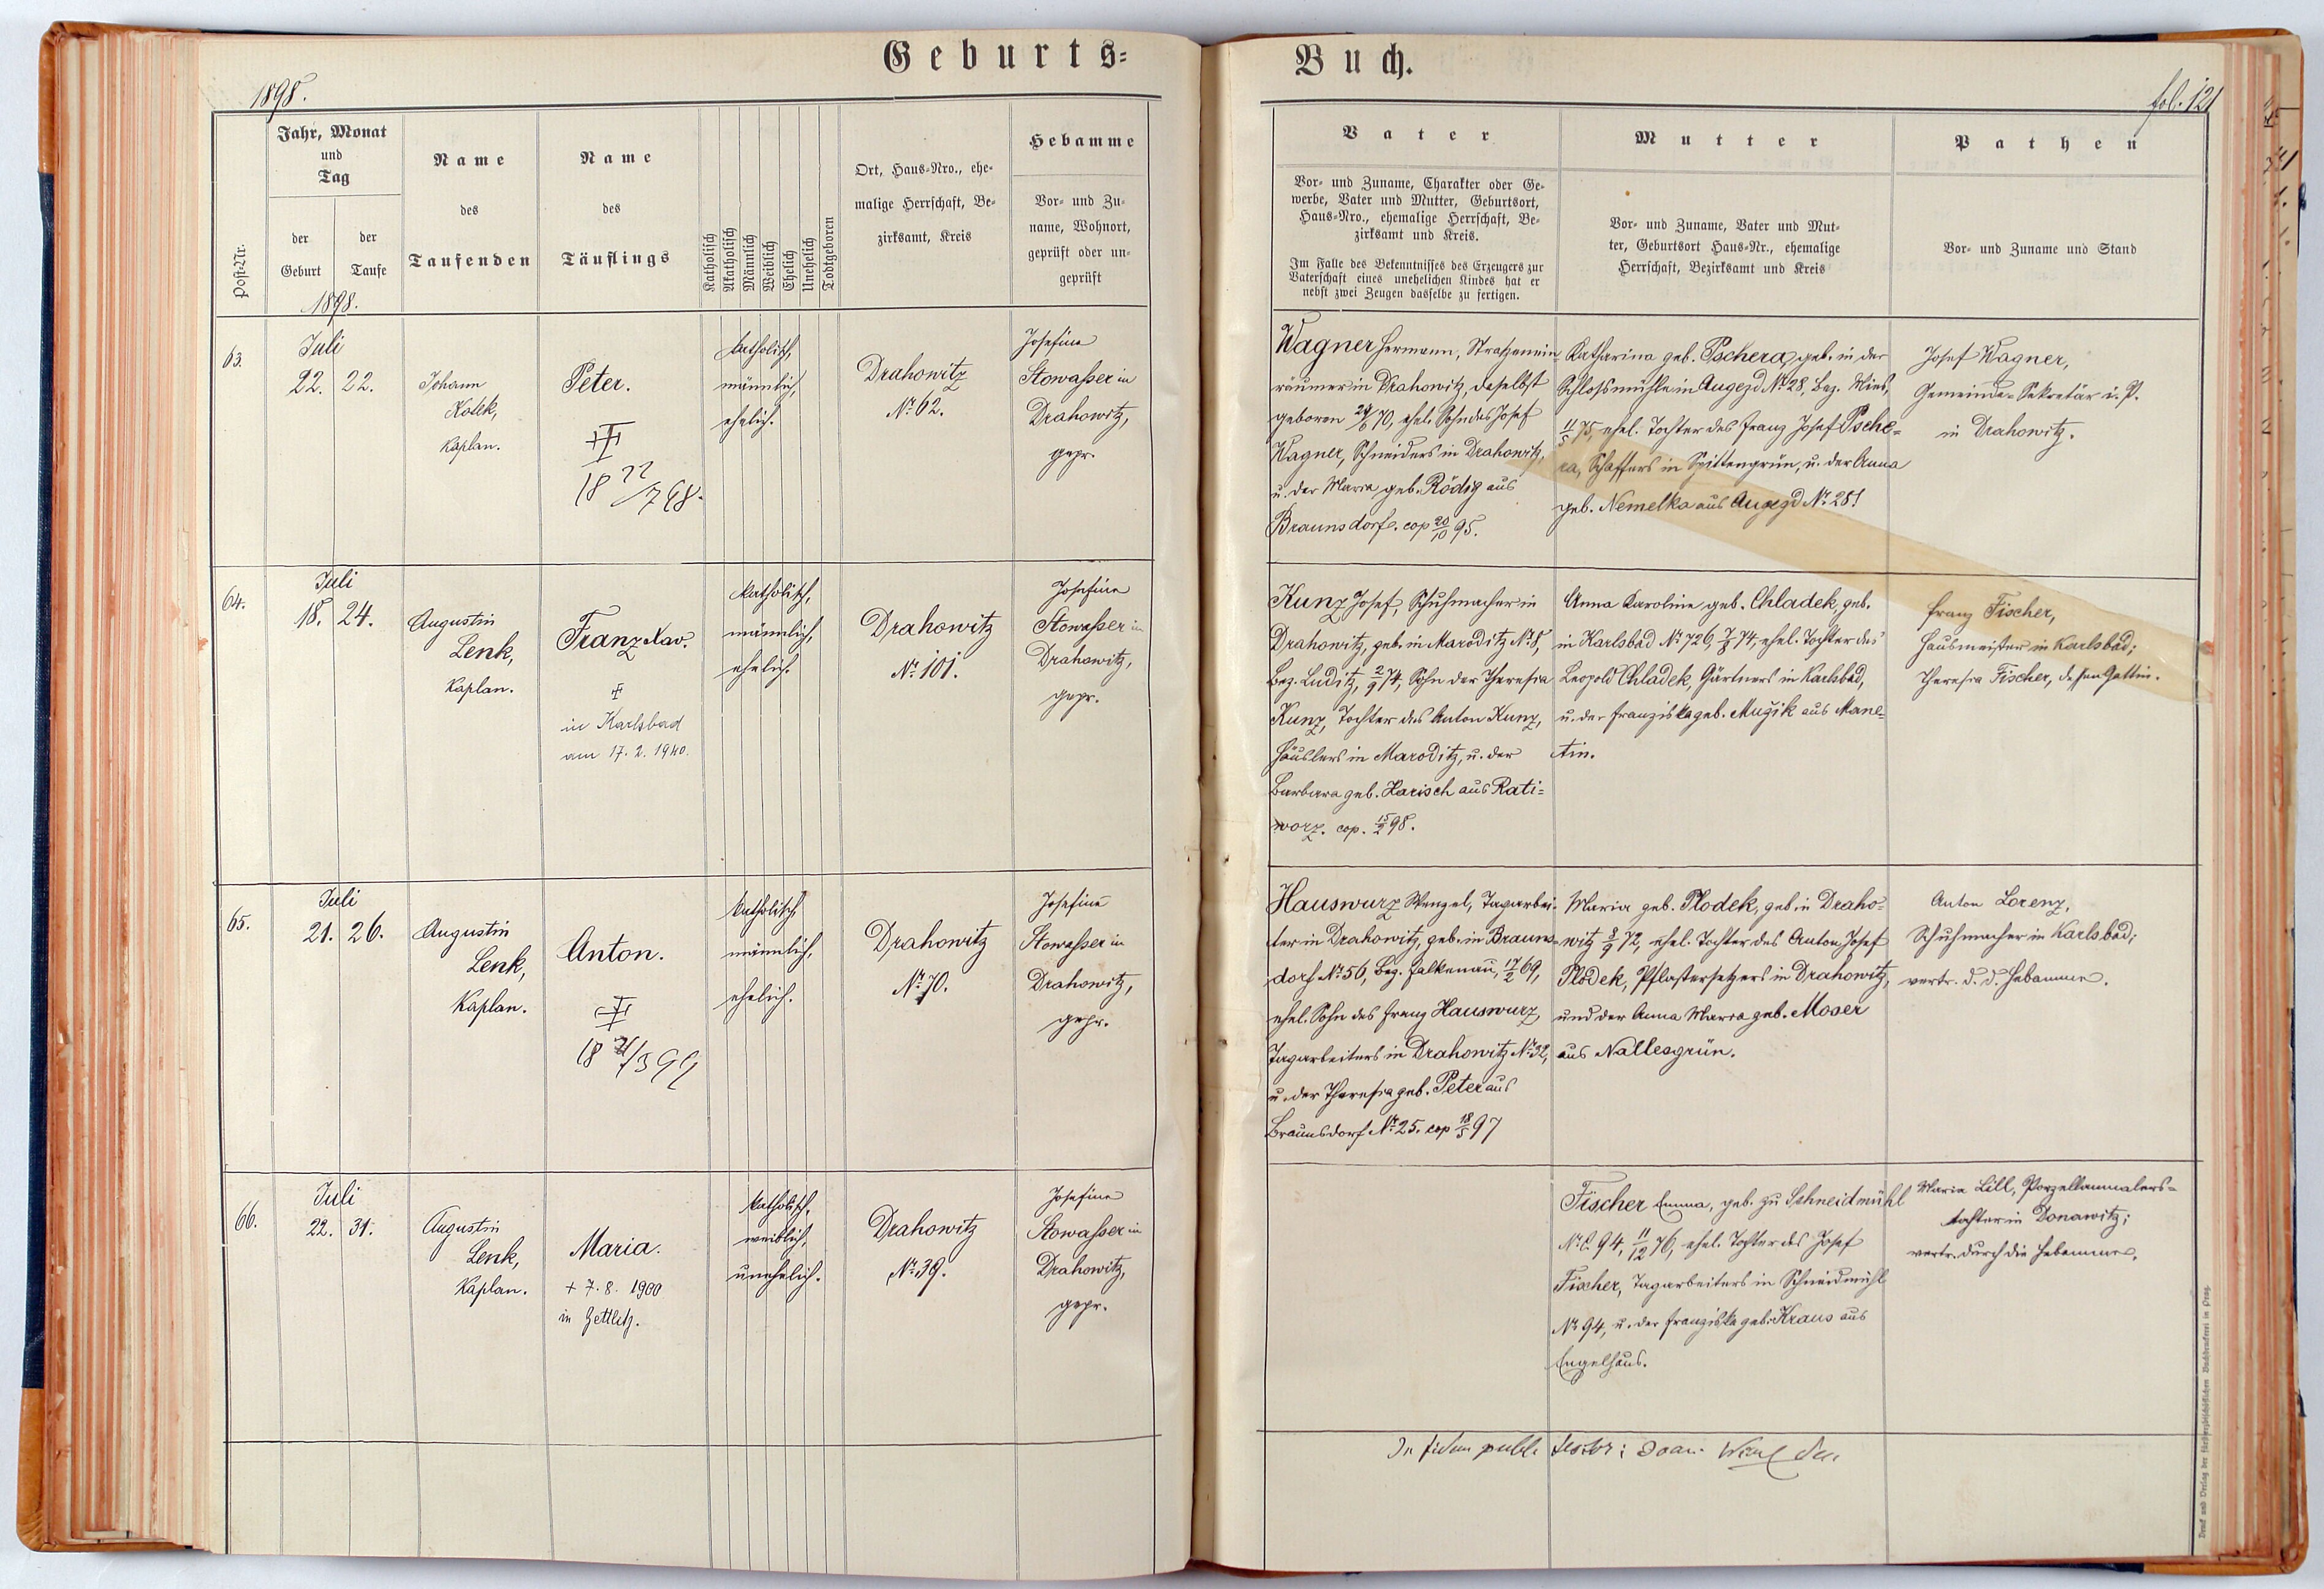 Geburts=
Buch.
1898.
fol. 121
Post-Nr.
Jahr, Monat
und
Tag
der
Geburt
der
Taufe
1898.
Name
des
Taufenden
Name
des
Täuflings
Katholisch
Akatholisch
Männlich
Weiblich
Ehelich
Unehelich
Todtgeboren
Ort, Haus-Nro., ehe-
malige Herrschaft, Be-
zirksamt, Kreis
Hebamme
Vor- und Zu-
name, Wohnort,
geprüft oder un-
geprüft
Vater
Vor- und Zuname, Charakter oder Ge-
werbe, Vater und Mutter, Geburtsort,
Haus-Nro., ehemalige Herrschaft, Be-
zirksamt und Kreis.
Im Falle des Bekenntnisses des Erzeugers zur
Vaterschaft eines unehelichen Kindes hat er
nebst zwei Zeugen dasselbe zu fertigen.
Mutter
Vor- und Zuname, Vater und Mut-
ter, Geburtsort Haus-Nr., ehemalige
Herrschaft, Bezirksamt und Kreis
Pathen
Vor- und Zuname und Stand
63.
Juli
22. 22.
Johann
Kotek,
Kaplan.
Peter.
18 22/7 98.
katholisch,
männlich,
ehelich.
Drahowitz
No 62.
Josefine
Stowasser in
Drahowitz,
gepr.
Wagner Hermann, Straßenein-
räumer in Drahowitz, daselbst
geboren 29/6 70, ehel. Sohn des Josef
Wagner, Schneiders in Drahowitz,
u. der Maria geb. Rödig aus
Braunsdorf. cop 20/10 95.
Katharina geb. Pschera, geb. in der
Schlossmühle in Augezd No 28, Bez. Mies,
11/5 75, ehel. Tochter des Franz Josef Psche-
ra, Schaffers in Spittengrün, u. der Anna
geb. Nemelka aus Augezd No 28!
Josef Wagner,
Gemeinde-Sekretär i. P.
in Drahowitz.
64.
Juli
18. 24.
Augustin
Lenk,
Kaplan.
Franz Xav.
in Karlsbad
am 17. 2. 1940.
katholisch,
männlich,
ehelich.
Drahowitz
No 101.
Josefine
Stowasser in
Drahowitz,
gepr.
Kunz Josef, Schuhmacher in
Drahowitz, geb. in Maroditz No 8,
Bez. Luditz, 2/9 74, Sohn der Theresia
Kunz, Tochter des Anton Kunz,
Häuslers in Maroditz, u. der
Barbara geb. Harisch aus Rati-
worz. cop. 15/2 98.
Anna Karoline geb. Chladek, geb.
in Karlsbad No 726, 7/8 74, ehel. Tochter des
Leopold Chladek, Gärtners in Karlsbad,
u. der Franziska geb. Mužik aus Mane-
tin.
Franz Fischer,
Hausmeister in Karlsbad;
Theresia Fischer, dessen Gattin.
65.
Juli
21. 26.
Augustin
Lenk,
Kaplan.
Anton.
katholisch,
männlich,
ehelich.
Drahowitz
No 70.
Josefine
Stowasser in
Drahowitz,
gepr.
Hauswurz Wenzel, Tagarbei-
ter in Drahowitz, geb. in Brauns-
dorf No 56, Bez. Falkenau, 17/2 69,
ehel. Sohn des Franz Hauswurz,
Tagarbeiters in Drahowitz No 32,
u. der Theresia geb. Peter aus
Braunsdorf No 25. cop 18/5 97
Maria geb. Plodek, geb. in Draho-
witz 8/9 72, ehel. Tochter des Anton Josef
Plodek, Pflastersetzers in Drahowitz,
und der Anna Maria geb. Moser
aus Nallesgrün.
Anton Lorenz,
Schuhmacher in Karlsbad;
vertr. d. d. Hebamme.
66.
Juli
22. 31.
Augustin
Lenk,
Kaplan.
Maria.
+ 7. 8. 1900
in Zettlitz.
katholisch,
weiblich,
unehelich.
Drahowitz
No 39.
Josefine
Stowasser in
Drahowitz,
gepr.
Fischer Emma, geb. zu Schneidmühl
No C. 94, 11/12 76, ehel. Tochter des Josef
Fischer, Tagarbeiters in Schneidmühl
No 94, u. der Franziska geb. Kraus aus
Engelhaus.
Maria Lill, Porzellanmalers-
tochter in Donawitz;
vertr. durch die Hebamme.
In fidem publ.
Druck und Verlag der fürsterzbischöflichen Buchdruckerei in Prag.